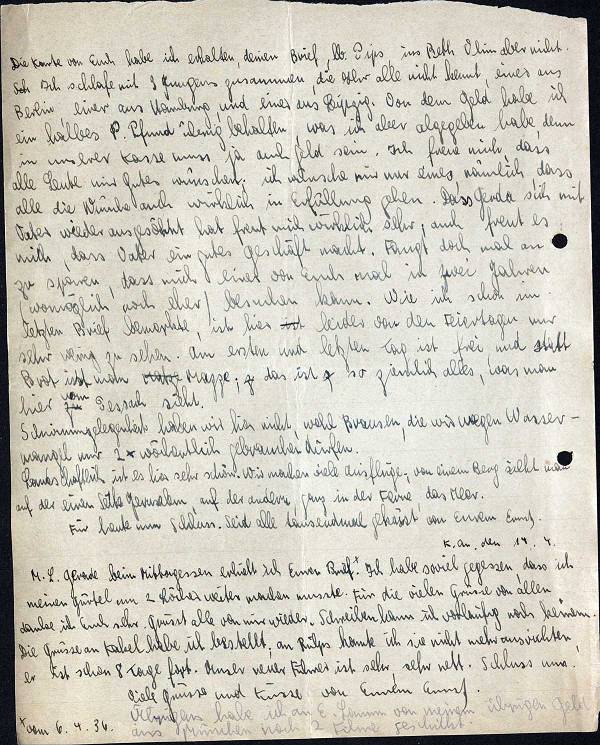 Die Karte von Euch habe ich erhalten, deinen Brief, lb. Pips, ins Beth Olim aber nicht.
Ich schlafe mit 3 Jungens zusammen, die Ihr alle nicht kennt, eines aus
Berlin einer aus Hamburg und eines aus Leipzig. Von dem Geld habe ich
ein halbes P. Pfund übrig behalten, was ich aber abgegeben habe, denn
in unserer Kasse muss ja auch Geld sein. Ich freue mich, dass
alle Leute mir Gutes wünschen, ich wünsche mir nur eines nämlich dass
alle die Wünsche auch wirklich in Erfüllung gehen. Dass Gerda sich mit
Vater wieder ausgesöhnt hat freut mich wirklich sehr, auch freut es
mich, dass Vater ein gutes Geschäft macht. Fangt doch mal an
zu sparen, dass mich einer von Euch mal in zwei Jahren
(womöglich noch eher) besuchen kann. Wie ich schon im
letzten Brief bemerkte, ist hier leider von den Feiertagen nur
sehr wenig zu sehen. Am ersten und letzten Tag ist frei und statt
Brot isst man Mazze, das ist so ziemlich alles, was man
hier vom Pessach sieht.
Schwimmgelegenheit haben wir hier nicht, wohl Brausen, die wir wegen Wasser-
mangel nur 2 x wöchentlich gebrauchen dürfen.
Landschaftlich ist es hier sehr schön. Wir machen viele Ausflüge, von einem Berg sieht man
auf der einen Seite Jerusalem, auf der andern, ganz in der Ferne das Meer.
Für heute nun Schluss. Seid alle tausendmal gegrüsst von Eurem Ernst.
K. An. den 14. 4.
M. L. Gerade beim Mittagessen erhielt ich Euren Brief.+ Ich habe soviel gegessen, dass ich
meinen Gürtel um 2 Löcher weiter machen musste. Für die vielen Grüsse von allen
danke ich Euch sehr. Grüsst alle von mir wieder. Schreiben kann ich vorläufig noch keinem.
Die Grüsse an Kabel habe ich bestellt, an konnte ich sie nicht mehr ausrichten,
er ist schon 8 Tage fort. Unser neuer Führer ist sehr sehr nett. Schluss nun.
Viele Grüsse und Küsse von Eurem Ernst.
+ vom 6. 4. 36.
Übrigens habe ich an E. von meinem übrigen Geld
aus München noch 2 Filme geschickt.